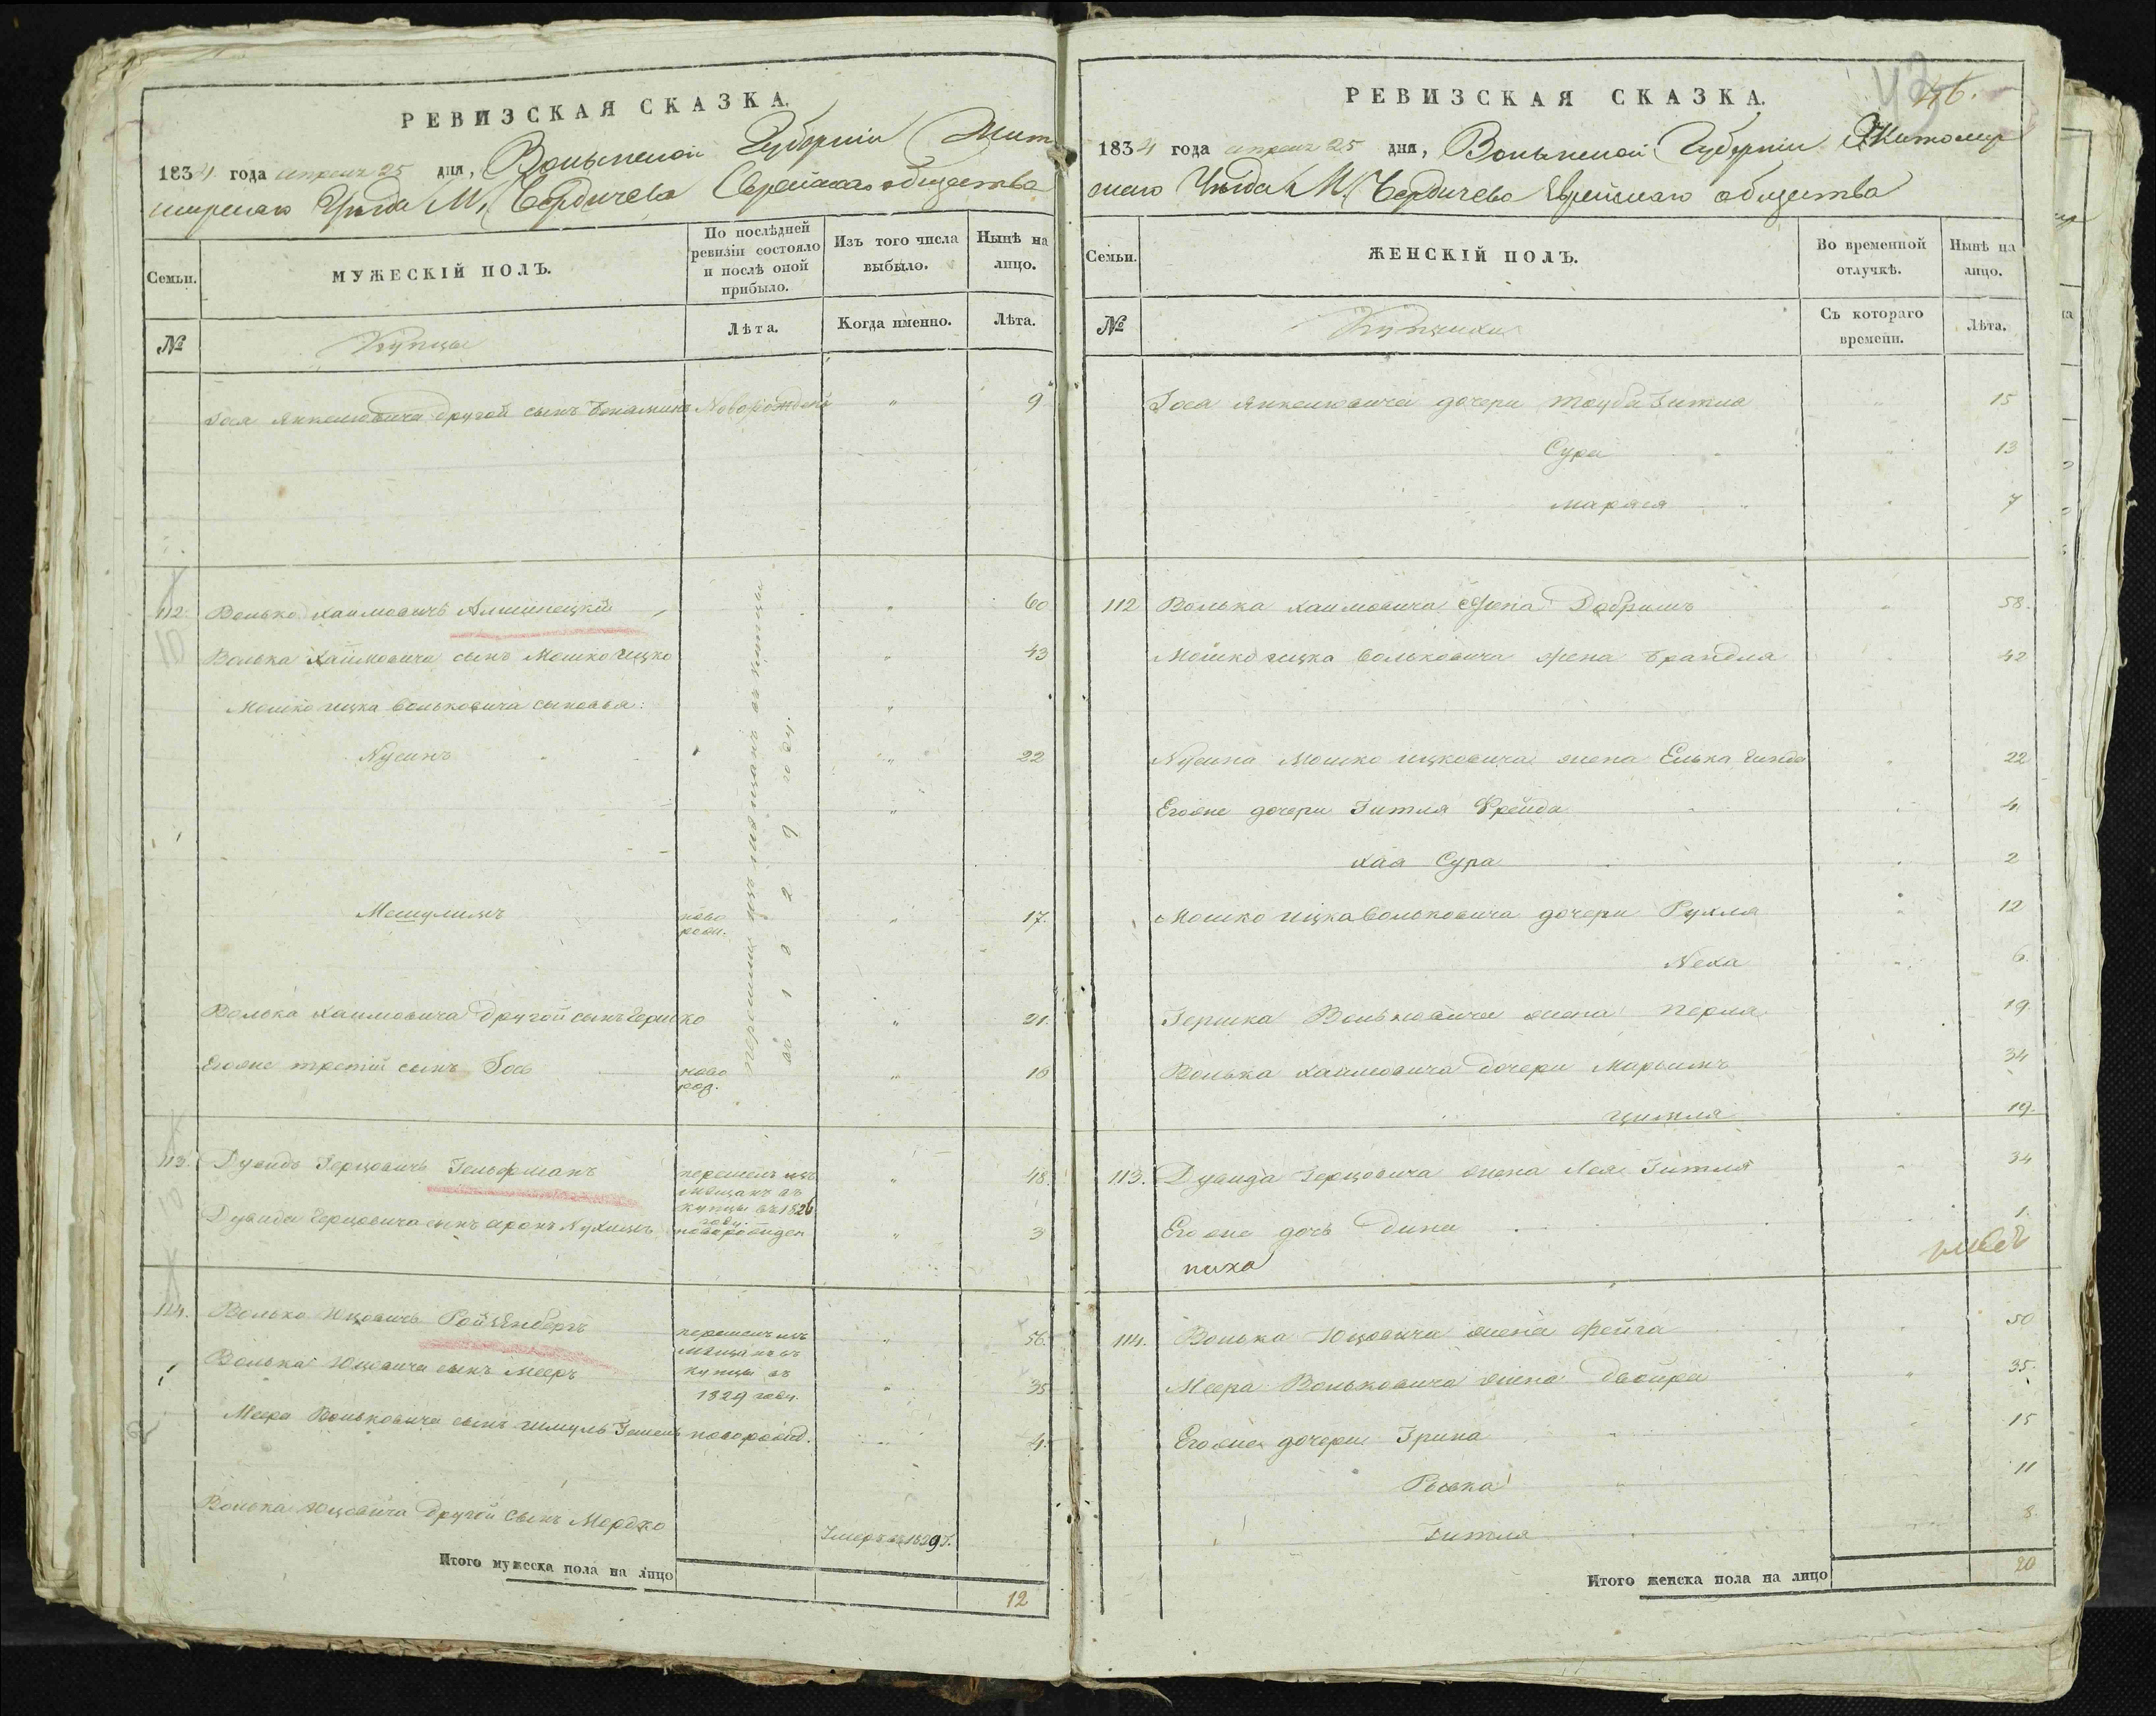 РЕВИЗСКАЯ СКАЗКА.
1834 года апреля 25 дня, Волынской Губернiи Жит
мирскаго Уѣзда М. Бердичева Еврейскаго общества
Семьи.
МУЖЕСКIЙ ПОЛЪ.
По послѣдней ревизiи состояло и послѣ оной прибыло.
Изъ того числа выбыло.
Нынѣ на лицо.
№
Купцы
Лѣта.
Когда именно.
Лѣта.
Iося Янкелювича другой сынъ Бенаминъ Новорожденъ " 9
112. Волько Хаимовичъ Алтинецкiй " 60
Волька Хаимовича сынъ Мошко Ицко " 43
Мошко Ицка Вольковича сыновья: "
Нусинъ " 22
Мешулимъ ново рожд. " 17.
Волька Хаимовича другой сынъ Гершко " 21.
Егоже третiй сынъ Iось ново рож. " 16
перешли изъ мещанъ въ купцы
въ 1829 году.
113. Дувидъ Герцовичъ Гельфманъ перешелъ изъ мещанъ въ купцы въ 1826 году. " 48.
Дувида Герцовича сынъ Аронъ Нухимъ новорожден " 3
114. Волько Юцовичъ Ройзенбергъ перешелъ изъ мещанъ въ купцы въ 1829 году. " 56.
Волька Юцовича сынъ Мееръ " 35
Меера Вольковича сынъ Шмуль новорожд. " 4.
Волька Юцовича другой сынъ Мордко Умеръ въ 1829 г.
Итого мужеска пола на лицо 12
РЕВИЗСКАЯ СКАЗКА.
46.
1834 года апреля 25 дня, Волынской Губернiи Житомир
скаго Уѣзда М. Бердичева Еврейскаго общества
Семьи.
ЖЕНСКIЙ ПОЛЪ.
Во временной отлучкѣ.
Нынѣ на лицо.
№
Купчихи
Съ котораго времени.
Лѣта.
Iося Янкелювича дочери Тауба Гитля " 15
Сура " 13
Маряся " 7
112 Волька Хаимовича жена Добришъ " 58.
Мошко Ицка Вольковича жена Брандля 42
Нусина Мошко Ицковича жена Елька Гинда " 22
Егоже дочери Гитля Фрейда 4.
Хая Сура 2
Мошко Ицка Вольковича дочери Рухля " 12
Неха " 6.
Гершка Вольковича жена Перля 19.
Волька Хаимовича дочери Марьимъ 34
Цитля " 19.
113. Дувида Герцовича жена Лея Гитля " 34
Егоже дочь Дина 1.
114. Волька Юцовича жена Фейга " 50
Меера Вольковича жена Двойра " 35.
Егоже дочери Грина " 15
Роська 11
Гитля 3.
Итого женска пола на лицо 20